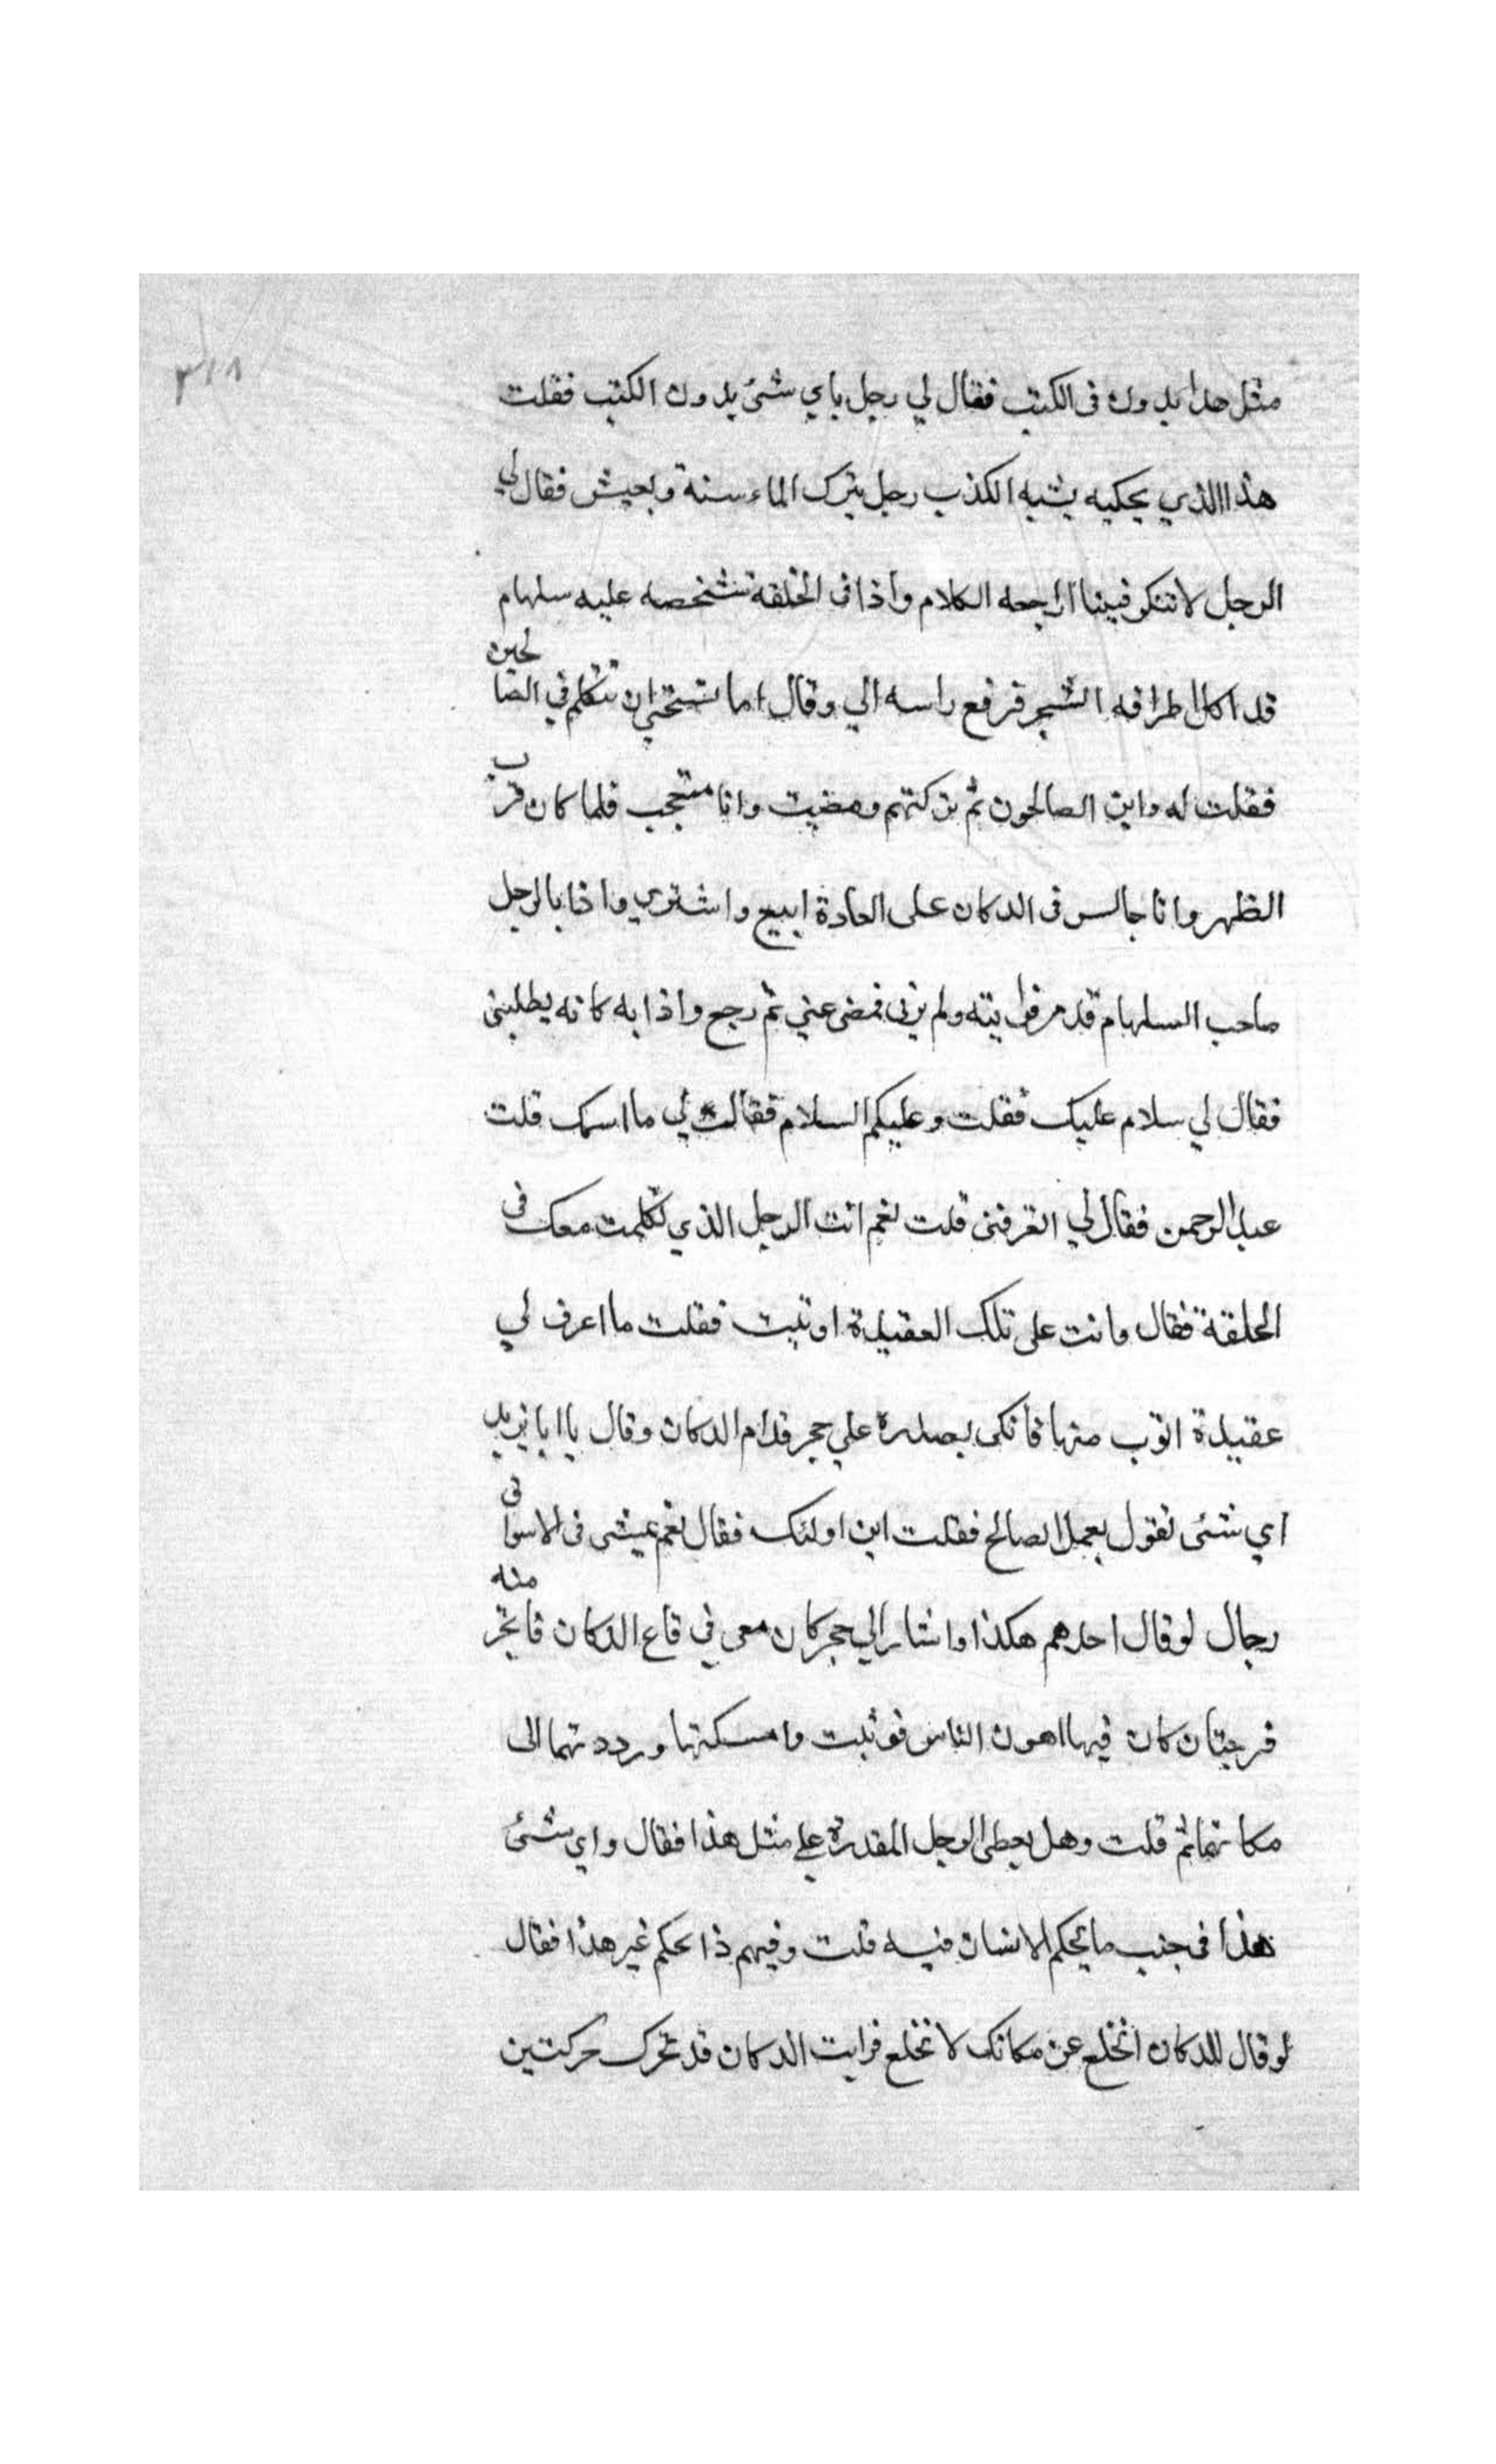 ٣١٨
مثل هذا يدون فى الكتب فقال لي رجل باي شئ يدون الكتب فقلت
هذا الذي يحكيه يشبه الكذب رجل يترك الماء سنة ويعيش فقال لي
الرجل لا تنكر فبينا اراجعه الكلام واذا فى الحلقة شخص عليه سلهام
قد اكل اطرافه الشجر فرفع راسه الي وقال اما تستحي ان تتكلم في الصالحين
فقلت له واين الصالحون ثم تركتهم ومضيت وانا متعجب فلما كان قرب
الظهر وانا جالس فى الدكان على العادة ابيع واشتري واذا بالرجل
صاحب السلهام قد مر فرايته ولم يرني فمضى عني ثم رجع واذا به كانه يطلبنى
فقال لي سلام عليك فقلت وعليكم السلام فقال لي ما اسمك قلت
عبد الرحمن فقال لي اتعرفنى قلت نعم انت الرجل الذي تكلمت معك فى
الحلقة فقال وانت على تلك العقيدة او تبت فقلت ما اعرف لي
عقيدة اتوب منها فاتكى بصدره علي حجر قدام الدكان وقال يا ابا يزيد
اي شئ تقول بعمل الصالح فقلت اين اولئك فقال نعم يمشى فى الاسواق
رجال لو قال احدهم هكذا واشار الي حجر كان معى في قاع الدكان فانخر منه
فرجتان كان فيها اهون الناس فوثبت وامسكتها ورددتهما الى
مكانهما ثم قلت وهل يعطى الرجل المقدرة على مثل هذا فقال واي شئ
هذا فى جنب ما يحكم الانسان فيه قلت وفيهم ذا يحكم غير هذا فقال
لو قال للدكان انخلع عن مكانك لانخلع فرايت الدكان قد تحرك حركتين